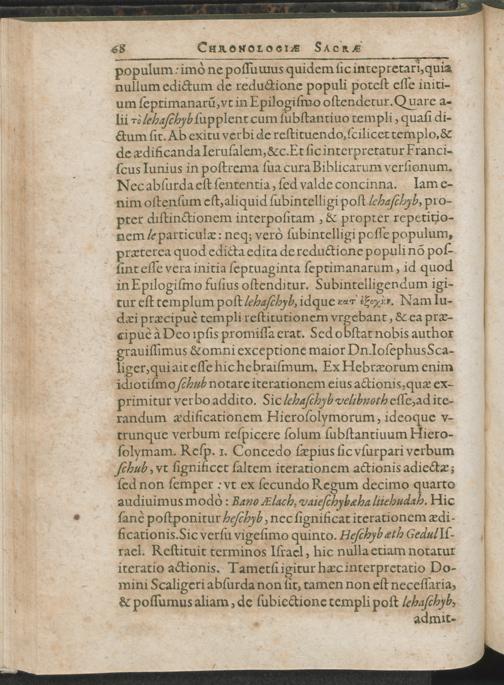 68 CHRONOLOGIÆ SACRÆ
populum: imò ne possumus quidem sic intepretari, quia
nullum edictum de reductione populi potest esse initi-
um septimanarũ, vt in Epilogismo ostendetur. Quare a-
lii τὸ lehaschyb supplent cum substantiuo templi, quasi di-
ctum sit. Ab exitu verbi de restituendo, scilicet templo, &
de ædificanda Ierusalem, &c. Et sic interpretatur Franci-
scus Iunius in postrema sua cura Biblicarum versionum.
Nec absurda est sententia, sed valde concinna. Iam e-
nim ostensum est, aliquid subintelligi post lehaschyb, pro-
pter distinctionem interpositam, & propter repetitio-
nem le particulæ: neq; verò subintelligi posse populum,
præterea quod edicta edita de reductione populi nõ pos-
sint esse vera initia septuaginta septimanarum, id quod
in Epilogismo fusius ostenditur. Subintelligendum igi-
tur est templum post lehaschyb, idque κατ᾽ ἐξοχὴν. Nam Iu-
dæi præcipuè templi restitutionem vrgebant, & ea præ-
cipuè à Deo ipsis promissa erat. Sed obstat nobis author
grauissimus & omni exceptione maior Dn. Iosephus Sca-
liger, qui ait esse hic hebraismum. Ex Hebræorum enim
idiotismo schub notare iterationem eius actionis, quæ ex-
primitur verbo addito. Sic lehaschyb velibnoth esse, ad ite-
randum ædificationem Hierosolymorum, ideoque v-
trunque verbum respicere solum substantiuum Hiero-
solymam. Resp. 1. Concedo sæpius sic vsurpari verbum
schub, vt significet saltem iterationem actionis adiectæ;
sed non semper: vt ex secundo Regum decimo quarto
audiuimus modò: Bano Ælach, vaieschybæha liiehudah. Hic
sanè postponitur heschyb, nec significat iterationem ædi-
ficationis. Sic versu vigesimo quinto. Heschyb æth Gedul Is-
rael. Restituit terminos Israel, hic nulla etiam notatur
iteratio actionis. Tametsi igitur hæc interpretatio Do-
mini Scaligeri absurda non sit, tamen non est necessaria,
& possumus aliam, de subiectione templi post lehaschyb,
admit-